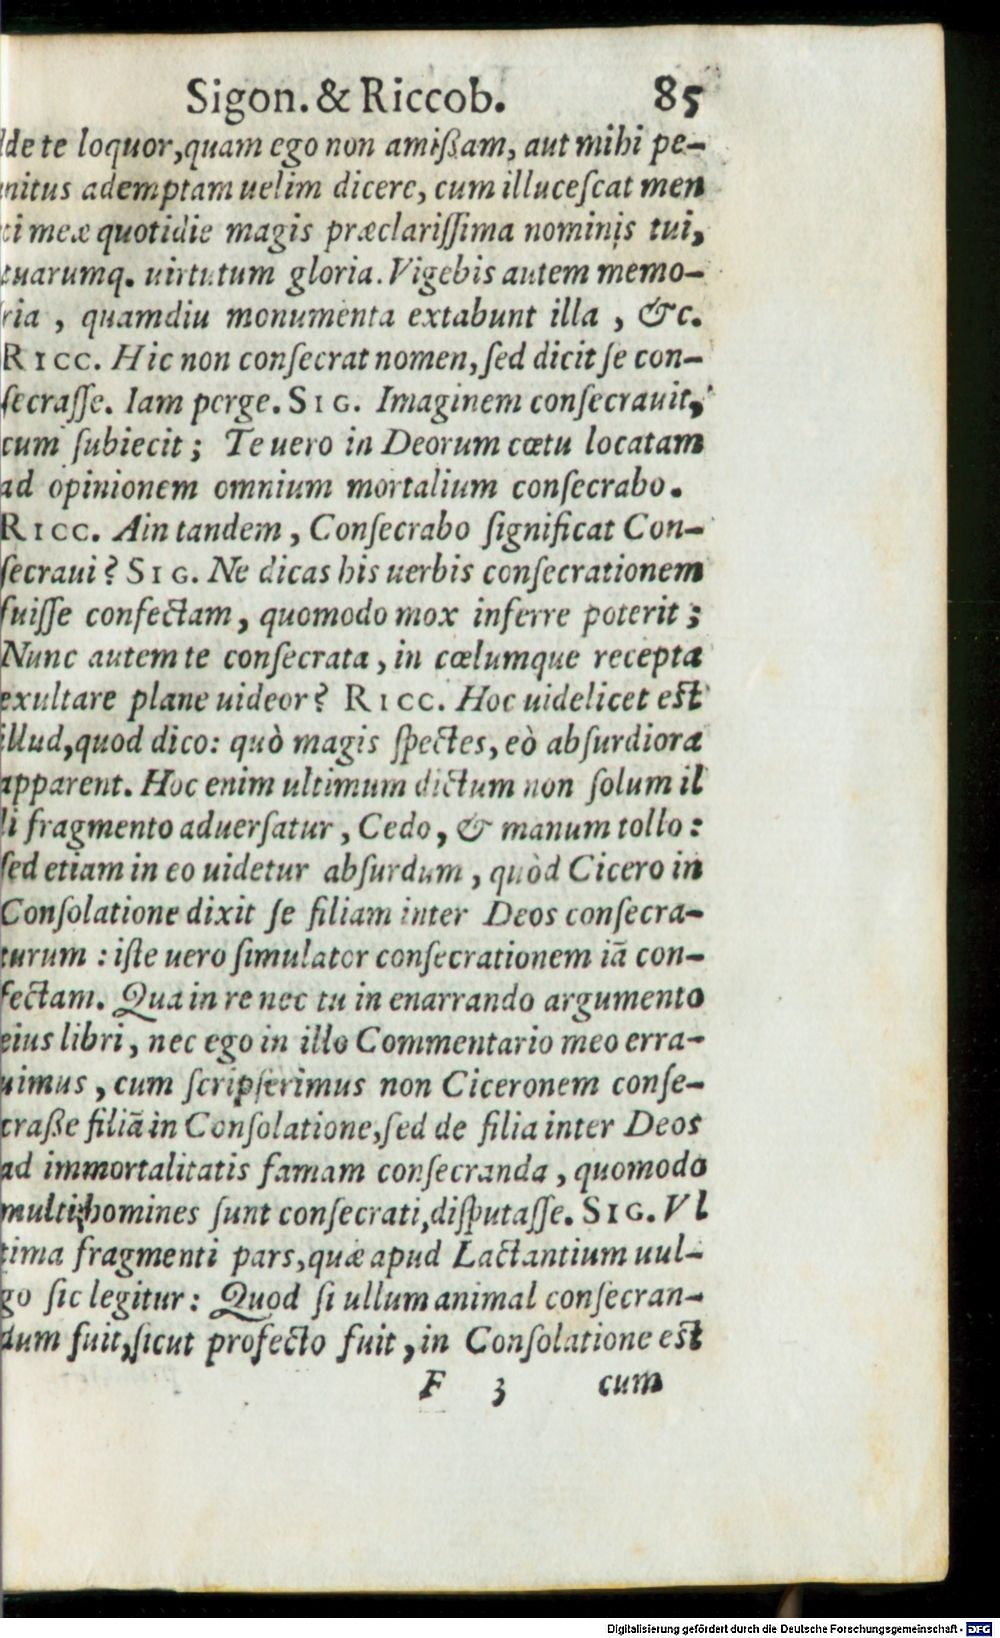 Sigon. & Riccob. 85
de te loquor, quam ego non amißam, aut mihi pe-
nitus ademptam uelim dicere, cum illuceſcat men
ti meæ quotidie magis præclariſſima nominis tui,
tuarumq. uirtutum gloria. Vigebis autem memo-
ria , quamdiu monumenta extabunt illa , &c.
RICC. Hic non conſecrat nomen, ſed dicit ſe con-
ſecraſſe. Iam perge. SIG. Imaginem conſecrauit,
cum ſubiecit ; Te uero in Deorum cœtu locatam
ad opinionem omnium mortalium conſecrabo.
RICC. Ain tandem , Conſecrabo ſignificat Con-
ſecraui? SIG. Ne dicas his uerbis conſecrationem
fuiſſe confectam, quomodo mox inferre poterit ;
Nunc autem te conſecrata, in cœlumque recepta
exultare plane uideor? RICC. Hoc uidelicet est
illud, quod dico: quò magis ſpectes, eò abſurdiora
apparent. Hoc enim ultimum dictum non ſolum il
li fragmento aduerſatur, Cedo, & manum tollo:
ſed etiam in eo uidetur abſurdum, quòd Cicero in
Conſolatione dixit ſe filiam inter Deos conſecra-
turum : iſte uero ſimulator conſecrationem iã con-
fectam. Qua in re nec tu in enarrando argumento
eius libri, nec ego in illo Commentario meo erra-
uimus, cum ſcripſerimus non Ciceronem conſe-
craße filiã in Conſolatione, ſed de filia inter Deos
ad immortalitatis famam conſecranda, quomodo
multi homines ſunt conſecrati, diſputaſſe. SIG. Vl
tima fragmenti pars, quæ apud Lactantium uul-
go ſic legitur: Quod ſi ullum animal conſecran-
dum fuit, ſicut profecto fuit, in Conſolatione est
F 3 cum
Digitalisierung gefördert durch die Deutsche Forschungsgemeinschaft - DFG